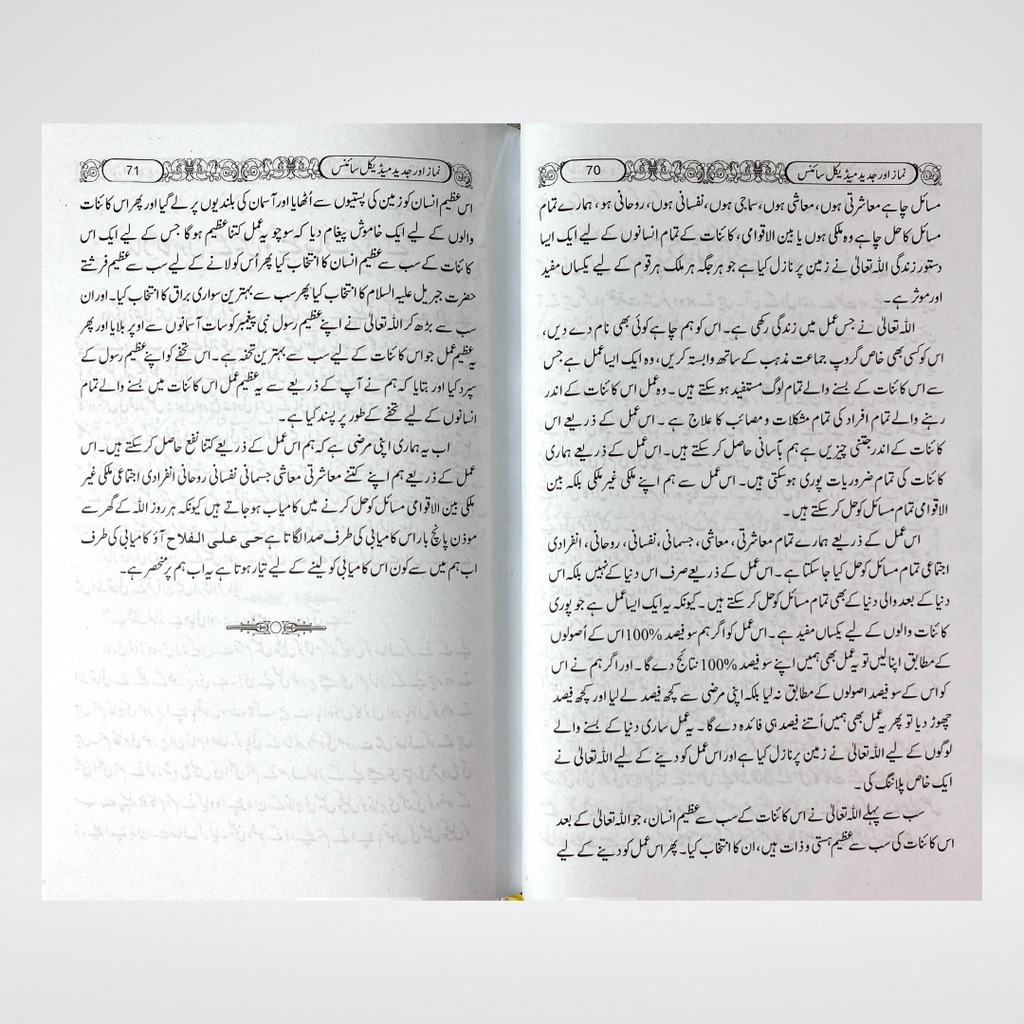 نماز اور جدید میڈیکل سائنس 70
مسائل چاہے معاشرتی ہوں، معاشی ہوں، سماجی ہوں، نفسانی ہوں، روحانی ہو، ہمارے تمام
مسائل کا حل چاہے وہ ملکی ہوں یا بین الاقوامی، کائنات کے تمام انسانوں کے لیے ایک ایسا
دستور زندگی اللہ تعالیٰ نے زمین پر نازل کیا ہے جو ہر جگہ ہر ملک ہر قوم کے لیے یکساں مفید
اور موثر ہے۔
اللہ تعالیٰ نے جس عمل میں زندگی رکھی ہے۔ اس کو ہم چاہے کوئی بھی نام دے دیں،
اس کو کسی بھی خاص گروپ جماعت مذہب کے ساتھ وابستہ کریں، وہ ایک ایسا عمل ہے جس
سے اس کائنات کے بسنے والے تمام لوگ مستفید ہو سکتے ہیں۔ وہ عمل اس کائنات کے اندر
رہنے والے تمام افراد کی تمام مشکلات و مصائب کا علاج ہے۔ اس عمل کے ذریعے اس
کائنات کے اندر جتنی چیزیں ہے ہم بآسانی حاصل کر سکتے ہیں۔ اس عمل کے ذریعے ہماری
کائنات کی تمام ضروریات پوری ہو سکتی ہیں۔ اس عمل سے ہم اپنے ملکی غیر ملکی بلکہ بین
الاقوامی تمام مسائل کو حل کر سکتے ہیں۔
اس عمل کے ذریعے ہمارے تمام معاشرتی، معاشی، جسمانی، نفسانی، روحانی، انفرادی
اجتماعی تمام مسائل کو حل کیا جا سکتا ہے۔ اس عمل کے ذریعے صرف اس دنیا کے نہیں بلکہ اس
دنیا کے بعد والی دنیا کے بھی تمام مسائل کو حل کر سکتے ہیں۔ کیونکہ یہ ایک ایسا عمل ہے جو پوری
کائنات والوں کے لیے یکساں مفید ہے۔ اس عمل کو اگر ہم سو فیصد 100% اس کے اُصولوں
کے مطابق اپنا لیں تو یہ عمل بھی ہمیں اپنے سو فیصد 100% نتائج دے گا۔ اور اگر ہم نے اس
کو اس کے سو فیصد اصولوں کے مطابق نہ لیا بلکہ اپنی مرضی سے کچھ فیصد لے لیا اور کچھ فیصد
چھوڑ دیا تو پھر یہ عمل بھی ہمیں اُتنے فیصد ہی فائدہ دے گا۔ یہ عمل ساری دنیا کے بسنے والے
لوگوں کے لیے اللہ تعالیٰ نے زمین پر نازل کیا ہے اور اس عمل کو دینے کے لیے اللہ تعالیٰ نے
ایک خاص پلاننگ کی۔
سب سے پہلے اللہ تعالیٰ نے اس کائنات کے سب سے عظیم انسان، جو اللہ تعالیٰ کے بعد
اس کائنات کی سب سے عظیم ہستی و ذات ہیں، ان کا انتخاب کیا۔ پھر اس عمل کو دینے کے لیے
نماز اور جدید میڈیکل سائنس 71
اس عظیم انسان کو زمین کی پستیوں سے اُٹھایا اور آسمان کی بلندیوں پر لے گیا اور پھر اس کائنات
والوں کے لیے ایک خاموش پیغام دیا کہ سوچو یہ عمل کتنا عظیم ہو گا جس کے لیے ایک اس
کائنات کے سب سے عظیم انسان کا انتخاب کیا پھر اُس کو لانے کے لیے سب سے عظیم فرشتے
حضرت جبریل علیہ السلام کا انتخاب کیا پھر سب سے بہترین سواری براق کا انتخاب کیا۔ اور ان
سب سے بڑھ کر اللہ تعالیٰ نے اپنے عظیم رسول نبی پیغمبر کو سات آسمانوں سے اوپر بلایا اور پھر
یہ عظیم عمل جو اس کائنات کے لیے سب سے بہترین تحفہ ہے۔ اس تحفے کو اپنے عظیم رسول کے
سپرد کیا اور بتایا کہ ہم نے آپ کے ذریعے سے یہ عظیم عمل اس کائنات میں بسنے والے تمام
انسانوں کے لیے تحفے کے طور پر پسند کیا ہے۔
اب یہ ہماری اپنی مرضی ہے کہ ہم اس عمل کے ذریعے کتنا نفع حاصل کر سکتے ہیں۔ اس
عمل کے ذریعے ہم اپنے کتنے معاشرتی معاشی جسمانی نفسانی روحانی انفرادی اجتماعی ملکی غیر
ملکی بین الاقوامی مسائل کو حل کرنے میں کامیاب ہو جاتے ہیں کیونکہ ہر روز اللہ کے گھر سے
موذن پانچ بار اس کامیابی کی طرف صدا لگاتا ہے حی علی الفلاح آؤ کامیابی کی طرف
اب ہم میں سے کون اس کامیابی کو لینے کے لیے تیار ہوتا ہے یہ اب ہم پر منحصر ہے۔